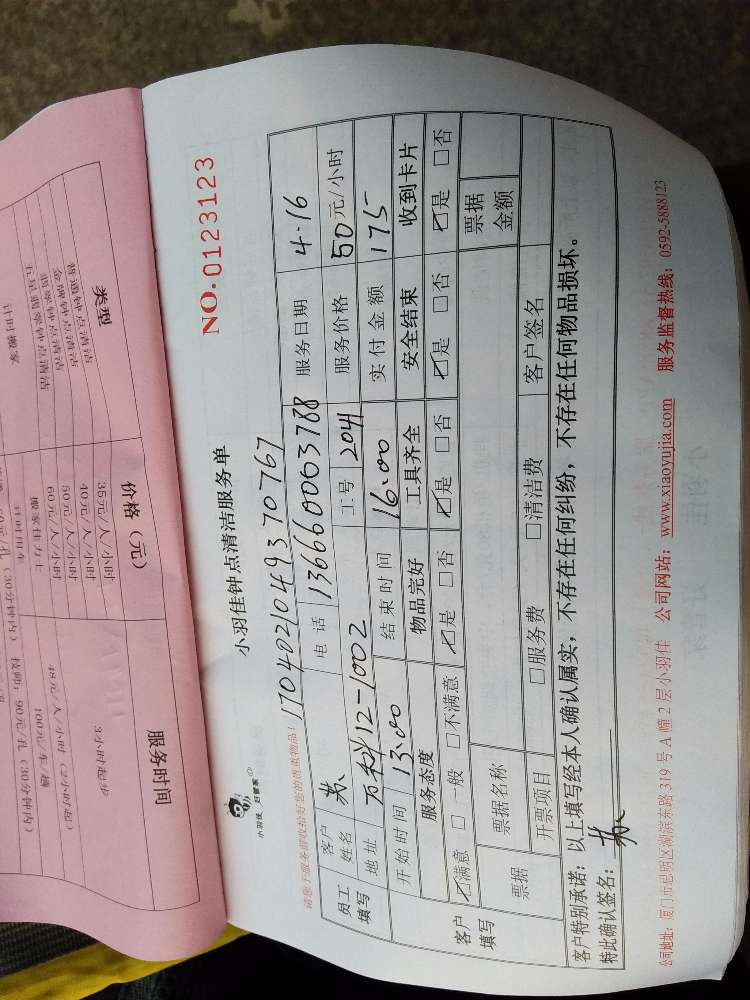 小羽佳 好管家
小羽佳钟点清洁服务单
NO.0123123
请您于服务前收拾好您的贵重物品!
17040210493 70767
员工填写
客户姓名 苏 电话 136660063788 服务日期 4·16
地址 万科12-1002 工号 2041 服务价格 50元/小时
开始时间 13:00 结束时间 16:00 实付金额 175
客户填写
服务态度 物品完好 工具齐全 安全结束 收到卡片
☑满意 □一般 □不满意 ☑是 □否 ☑是 □否 ☑是 □否 ☑是 □否
票据 票据名称 票据金额
开票项目 □服务费 □清洁费 客户签名
客户特别承诺：以上填写经本人确认属实，不存在任何纠纷，不存在任何物品损坏。
特此确认签名：苏
公司地址：厦门市思明区湖滨东路 319 号 A 幢 2 层小羽佳 公司网站：www.xiaoyujia.com 服务监督热线：0592-5888123
类型 价格（元） 服务时间
普通钟点清洁 35元/人/小时
金牌钟点清洁 40元/人/小时
50元/人/小时
60元/人/小时
3小时起步
计时搬家
48元/人/小时（2小时起）
100元/车/趟